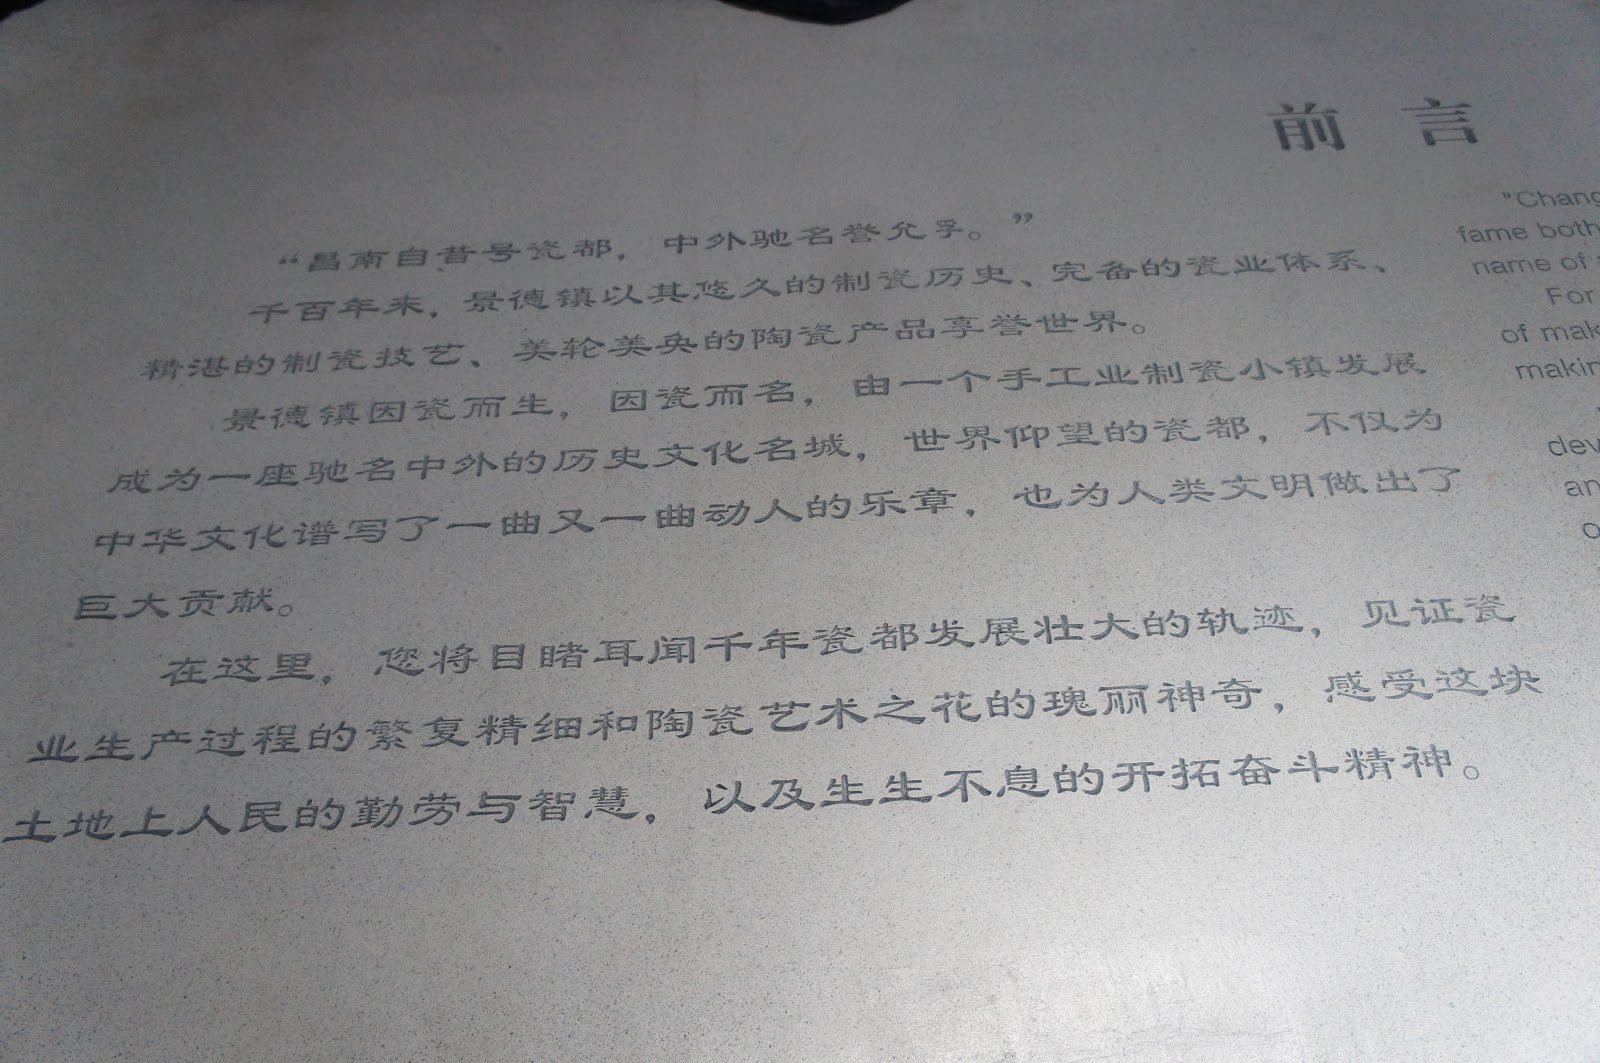 前言
“昌南自昔号瓷都，中外驰名誉允孚。”
千百年来，景德镇以其悠久的制瓷历史、完备的瓷业体系、
精湛的制瓷技艺、美轮美奂的陶瓷产品享誉世界。
景德镇因瓷而生，因瓷而名，由一个手工业制瓷小镇发展
成为一座驰名中外的历史文化名城，世界仰望的瓷都，不仅为
中华文化谱写了一曲又一曲动人的乐章，也为人类文明做出了
巨大贡献。
在这里，您将目睹耳闻千年瓷都发展壮大的轨迹，见证瓷
业生产过程的繁复精细和陶瓷艺术之花的瑰丽神奇，感受这块
土地上人民的勤劳与智慧，以及生生不息的开拓奋斗精神。
"Chang
fame both
name of
For
of mak
makin
dev
an